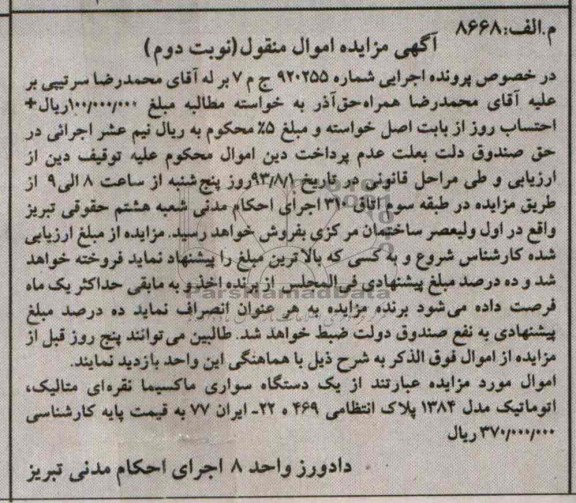 م.الف:۸۶۶۸
آگهی مزایده اموال منقول(نوبت دوم)
در خصوص پرونده اجرایی شماره ۹۲۰۲۵۵ ج م ۷ بر له آقای محمدرضا سرتیپی بر
علیه آقای محمدرضا همراه حق‌آذر به خواسته مطالبه مبلغ ۱۰۰/۰۰۰/۰۰۰ریال+
احتساب روز از بابت اصل خواسته و مبلغ ۵٪ محکوم به ریال نیم عشر اجرائی در
حق صندوق دلت بعلت عدم پرداخت دین اموال محکوم علیه توقیف دین از
ارزیابی و طی مراحل قانونی در تاریخ ۹۳/۸/۱روز پنج شنبه از ساعت ۸ الی ۹ از
طریق مزایده در طبقه سوم اتاق ۳۱۰ اجرای احکام مدنی شعبه هشتم حقوقی تبریز
واقع در اول ولیعصر ساختمان مرکزی بفروش خواهد رسید. مزایده از مبلغ ارزیابی
شده کارشناس شروع و به کسی که بالاترین مبلغ را پیشنهاد نماید فروخته خواهد
شد و ده درصد مبلغ پیشنهادی فی‌المجلس از برنده اخذ و به مابقی حداکثر یک ماه
فرصت داده می‌شود برنده مزایده به هر عنوان انصراف نماید ده درصد مبلغ
پیشنهادی به نفع صندوق دولت ضبط خواهد شد. طالبین می‌توانند پنج روز قبل از
مزایده از اموال فوق الذکر به شرح ذیل با هماهنگی این واحد بازدید نمایند.
اموال مورد مزایده عبارتند از یک دستگاه سواری ماکسیما نقره‌ای متالیک،
اتوماتیک مدل ۱۳۸۴ پلاک انتظامی ۴۶۹ ه ۲۲- ایران ۷۷ به قیمت پایه کارشناسی
۳۷۰/۰۰۰/۰۰۰ ریال
دادورز واحد ۸ اجرای احکام مدنی تبریز
ParsNamadData